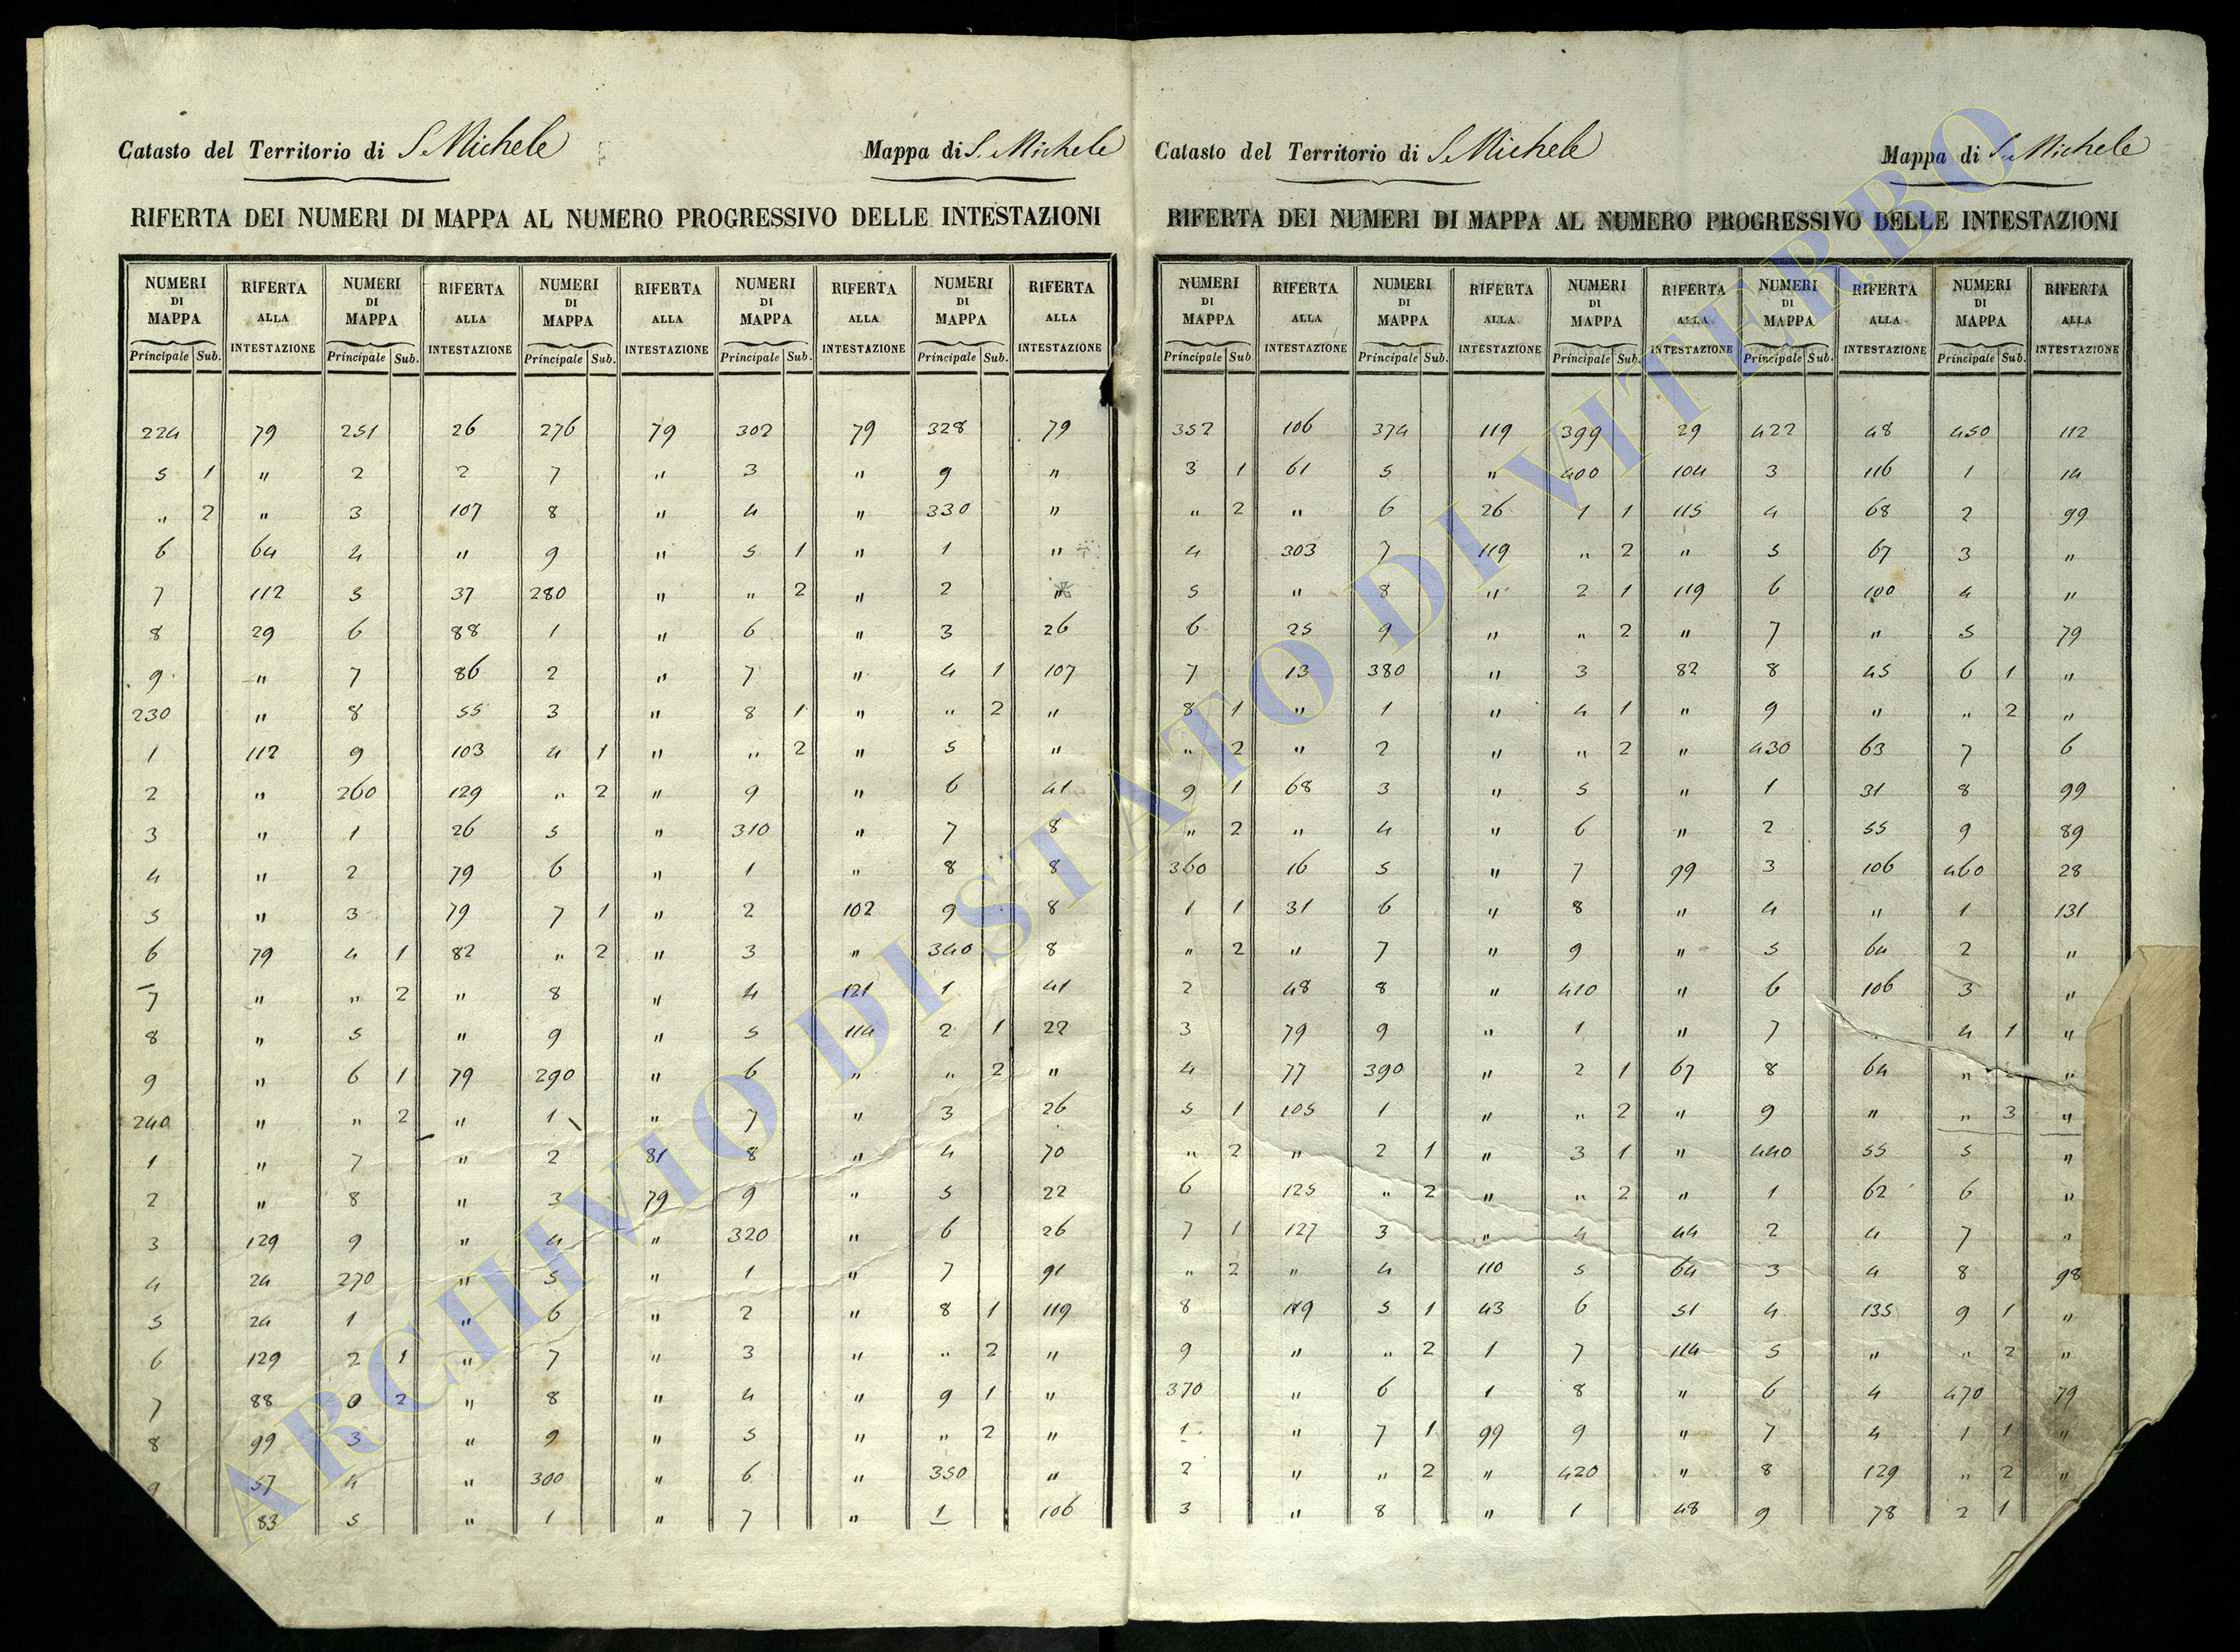 Catasto del Territorio di S. Michele Mappa di S. Michele
RIFERTA DEI NUMERI DI MAPPA AL NUMERO PROGRESSIVO DELLE INTESTAZIONI
NUMERI DI MAPPA Principale Sub. RIFERTA ALLA INTESTAZIONE NUMERI DI MAPPA Principale Sub. RIFERTA ALLA INTESTAZIONE NUMERI DI MAPPA Principale Sub. RIFERTA ALLA INTESTAZIONE NUMERI DI MAPPA Principale Sub. RIFERTA ALLA INTESTAZIONE NUMERI DI MAPPA Principale Sub. RIFERTA ALLA INTESTAZIONE
224 79 251 26 276 79 302 79 328 79
5 1 " 2 2 7 " 3 " 9 "
" 2 " 3 107 8 " 4 " 330 "
6 64 4 " 9 " 5 1 " 1 "
7 112 5 37 280 " " 2 " 2 "
8 29 6 88 1 " 6 " 3 26
9 " 7 86 2 " 7 " 4 1 107
230 " 8 55 3 " 8 1 " " 2 "
1 112 9 103 4 1 " " 2 " 5 "
2 " 260 129 " 2 " 9 " 6 41
3 " 1 26 5 " 310 " 7 8
4 " 2 79 6 " 1 " 8 8
5 " 3 79 7 1 " 2 102 9 8
6 79 4 1 82 " 2 " 3 " 340 8
7 " " 2 " 8 " 4 121 1 41
8 " 5 " 9 " 5 114 2 1 22
9 " 6 1 79 290 " 6 " " 2 "
240 " " 2 " 1 " 7 " 3 26
1 " 7 " 2 81 8 " 4 70
2 " 8 " 3 79 9 " 5 22
3 129 9 " 4 " 320 " 6 26
4 24 270 " 5 " 1 " 7 91
5 24 1 " 6 " 2 " 8 1 119
6 129 2 1 " 7 " 3 " " 2 "
7 88 0 2 " 8 " 4 " 9 1 "
8 99 3 " 9 " 5 " " 2 "
9 57 4 " 300 " 6 " 350 "
83 5 " 1 " 7 " 1 106
Catasto del Territorio di S. Michele Mappa di S. Michele
RIFERTA DEI NUMERI DI MAPPA AL NUMERO PROGRESSIVO DELLE INTESTAZIONI
NUMERI DI MAPPA Principale Sub RIFERTA ALLA INTESTAZIONE NUMERI DI MAPPA Principale Sub. RIFERTA ALLA INTESTAZIONE NUMERI DI MAPPA Principale Sub. RIFERTA ALLA INTESTAZIONE NUMERI DI MAPPA Principale Sub. RIFERTA ALLA INTESTAZIONE NUMERI DI MAPPA Principale Sub. RIFERTA ALLA INTESTAZIONE
352 106 374 119 399 29 422 48 450 112
3 1 61 5 " 400 104 3 116 1 14
" 2 " 6 26 1 1 115 4 68 2 99
4 303 7 119 " 2 " 5 67 3 "
5 " 8 " 2 1 119 6 100 4 "
6 25 9 " " 2 " 7 " 5 79
7 13 380 " 3 82 8 45 6 1 "
8 1 " 1 " 4 1 " 9 " " 2 "
" 2 " 2 " " 2 " 430 63 7 6
9 1 68 3 " 5 " 1 31 8 99
" 2 " 4 " 6 " 2 55 9 89
360 16 5 " 7 99 3 106 460 28
1 1 31 6 " 8 " 4 " 1 131
" 2 " 7 " 9 " 5 64 2 "
2 48 8 " 410 " 6 106 3 "
3 79 9 " 1 " 7 4 1 "
4 77 390 " 2 1 67 8 64 " 2 "
5 1 105 1 " " 2 " 9 " " 3 "
" 2 " 2 1 " 3 1 " 440 55 5 "
6 125 " 2 " " 2 " 1 62 6 "
7 1 127 3 " 4 44 2 4 7 "
" 2 " 4 110 5 64 3 4 8 98
8 119 5 1 43 6 51 4 135 9 1 "
9 " " 2 1 7 114 5 " " 2 "
370 " 6 1 8 " 6 4 470 79
1 " 7 1 99 9 " 7 4 1 1 "
2 " " 2 " 420 " 8 129 " 2 "
3 " 8 " 1 48 9 78 2 1
ARCHIVIO DI STATO DI VITERBO